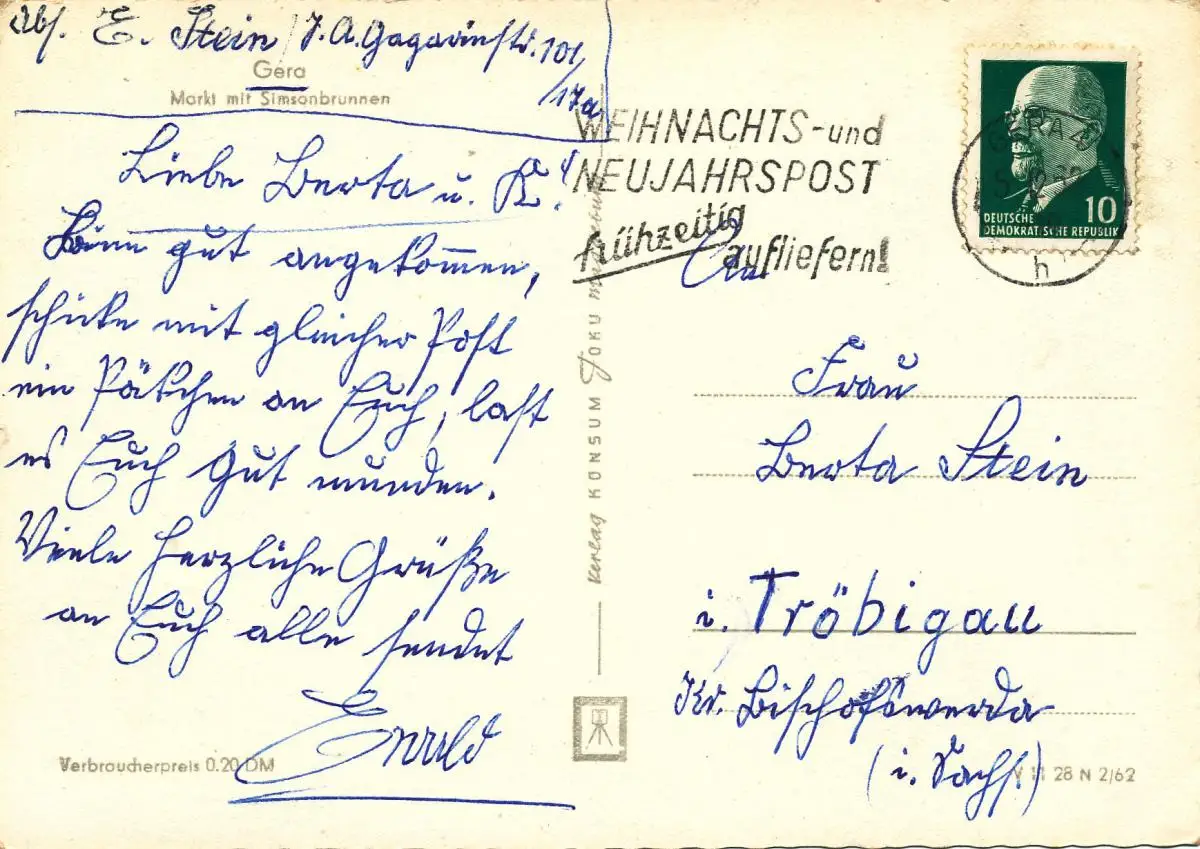 Abs. E. Stein, J. A. Gagarinstr. 101
/17a
Gera
Markt mit Simsonbrunnen
Liebe Berta u. K.!
Binn gut angekommen,
schicke mit gleicher Post
ein Päkchen an Euch, laßt
es Euch gut munden.
Viele herzliche Grüße
an Euch alle sendet
Ewald
Verbraucherpreis 0.20 DM
Verlag KONSUM FOKU
WEIHNACHTS-und
NEUJAHRSPOST
frühzeitig
aufliefern!
DEUTSCHE
DEMOKRATISCHE REPUBLIK
10
GERA
h
An
Frau
Berta Stein
i. Tröbigau
Kr. Bischofswerda
(i. Sachs.)
28 N 2/62